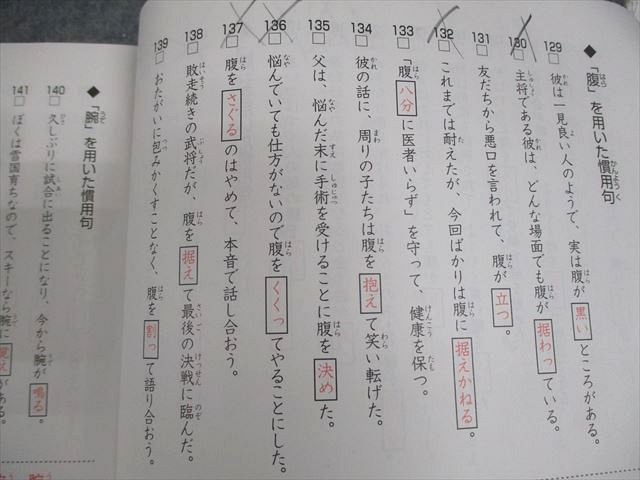 ◆「腹」を用いた慣用句
129 □ 彼は一見良い人のようで、実は腹が黒いところがある。
130 □ 主将である彼は、どんな場面でも腹が据わっている。
131 □ 友だちから悪口を言われて、腹が立つ。
132 □ これまでは耐えたが、今回ばかりは腹に据えかねる。
133 □ 「腹八分に医者いらず」を守って、健康を保つ。
134 □ 彼の話に、周りの子たちは腹を抱えて笑い転げた。
135 □ 父は、悩んだ末に手術を受けることに腹を決めた。
136 □ 悩んでいても仕方がないので腹をくくってやることにした。
137 □ 腹をさぐるのはやめて、本音で話し合おう。
138 □ 敗走続きの武将だが、腹を据えて最後の決戦に臨んだ。
139 □ おたがいに包みかくすことなく、腹を割って語り合おう。
◆「腕」を用いた慣用句
140 □ 久しぶりに試合に出ることになり、今から腕が鳴る。
141 □ ぼくは雪国育ちなので、スキーなら腕に
がある。